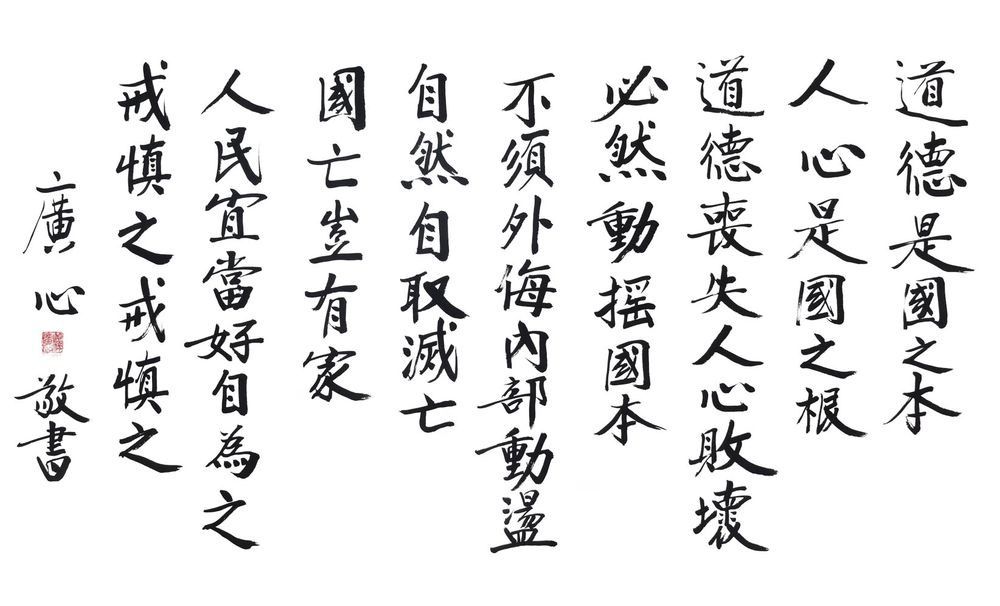 道德是國之本
人心是國之根
道德喪失人心敗壞
必然動搖國本
不須外侮內部動盪
自然自取滅亡
國亡豈有家
人民宜當好自為之
戒慎之戒慎之
廣心敬書